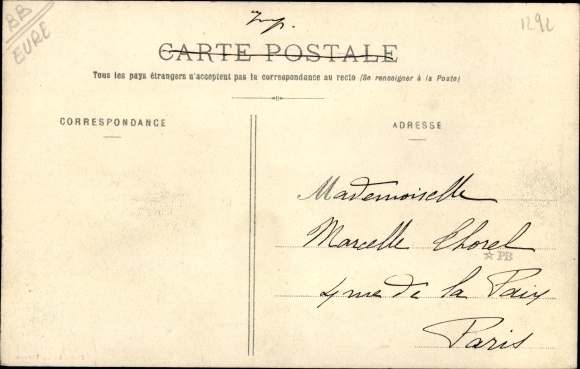 BB
EURE
Imp.
1292
CARTE POSTALE
Tous les pays étrangers n'acceptent pas la correspondance au recto (Se renseigner à la Poste)
CORRESPONDANCE
ADRESSE
Mademoiselle
Marcelle Thorel
PB
4 rue de la Paix
Paris